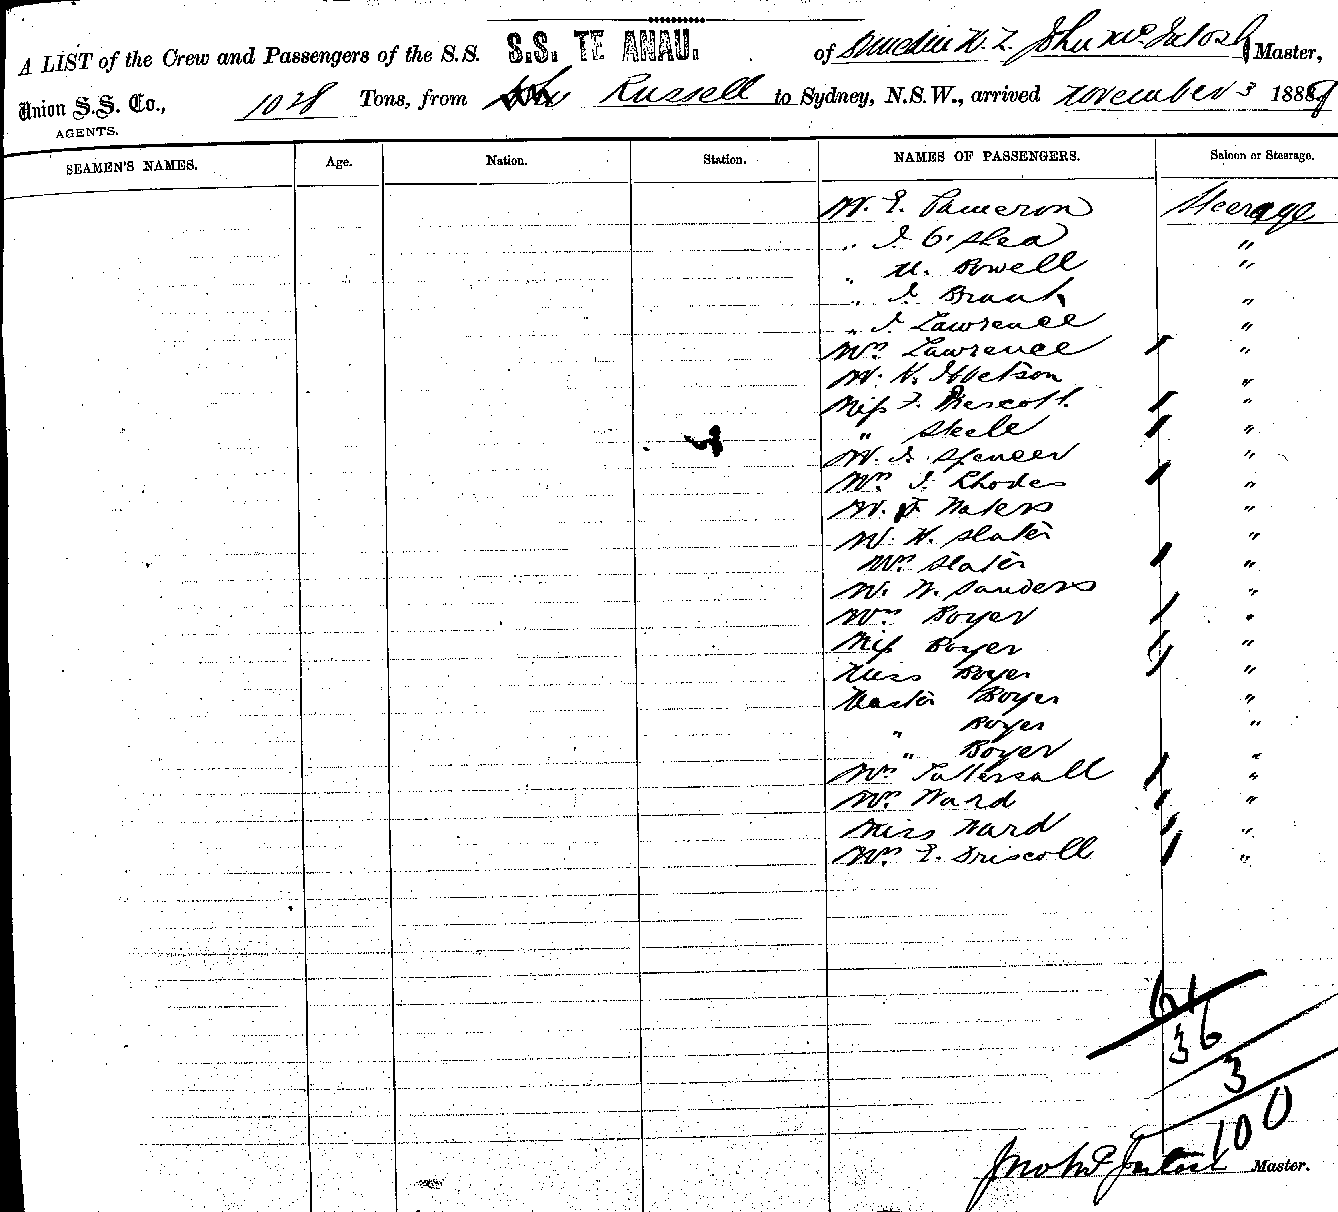 A LIST of the Crew and Passengers of the S.S. S.S. TE ANAU. of Dunedin N.Z. John McIntosh Master,
Union S.S. Co., 1028 Tons, from Russell to Sydney, N.S.W., arrived November 3 1889
AGENTS.
SEAMEN'S NAMES. Age. Nation. Station. NAMES OF PASSENGERS. Saloon or Steerage.
Mr. E. Cameron Steerage
" J. O'Shea "
" M. Powell "
" J. "
" J. Lawrence "
Mrs Lawrence "
Mr. H. Ibbetson "
Miss F. Prescott "
" Steele "
Mr. J. Spencer "
Mrs J. Rhodes "
Mr. J Waters "
Mr. H. Slater "
Mrs Slater "
Mr. W. Sanders "
Mrs Boyer "
Miss Boyer "
Miss Boyer "
Master Boyer "
" Boyer "
" Boyer "
Mrs Tattersall "
Mrs Ward "
Miss Ward "
Mrs E. Driscoll "
61
36
3
100
Jno McIntosh Master.